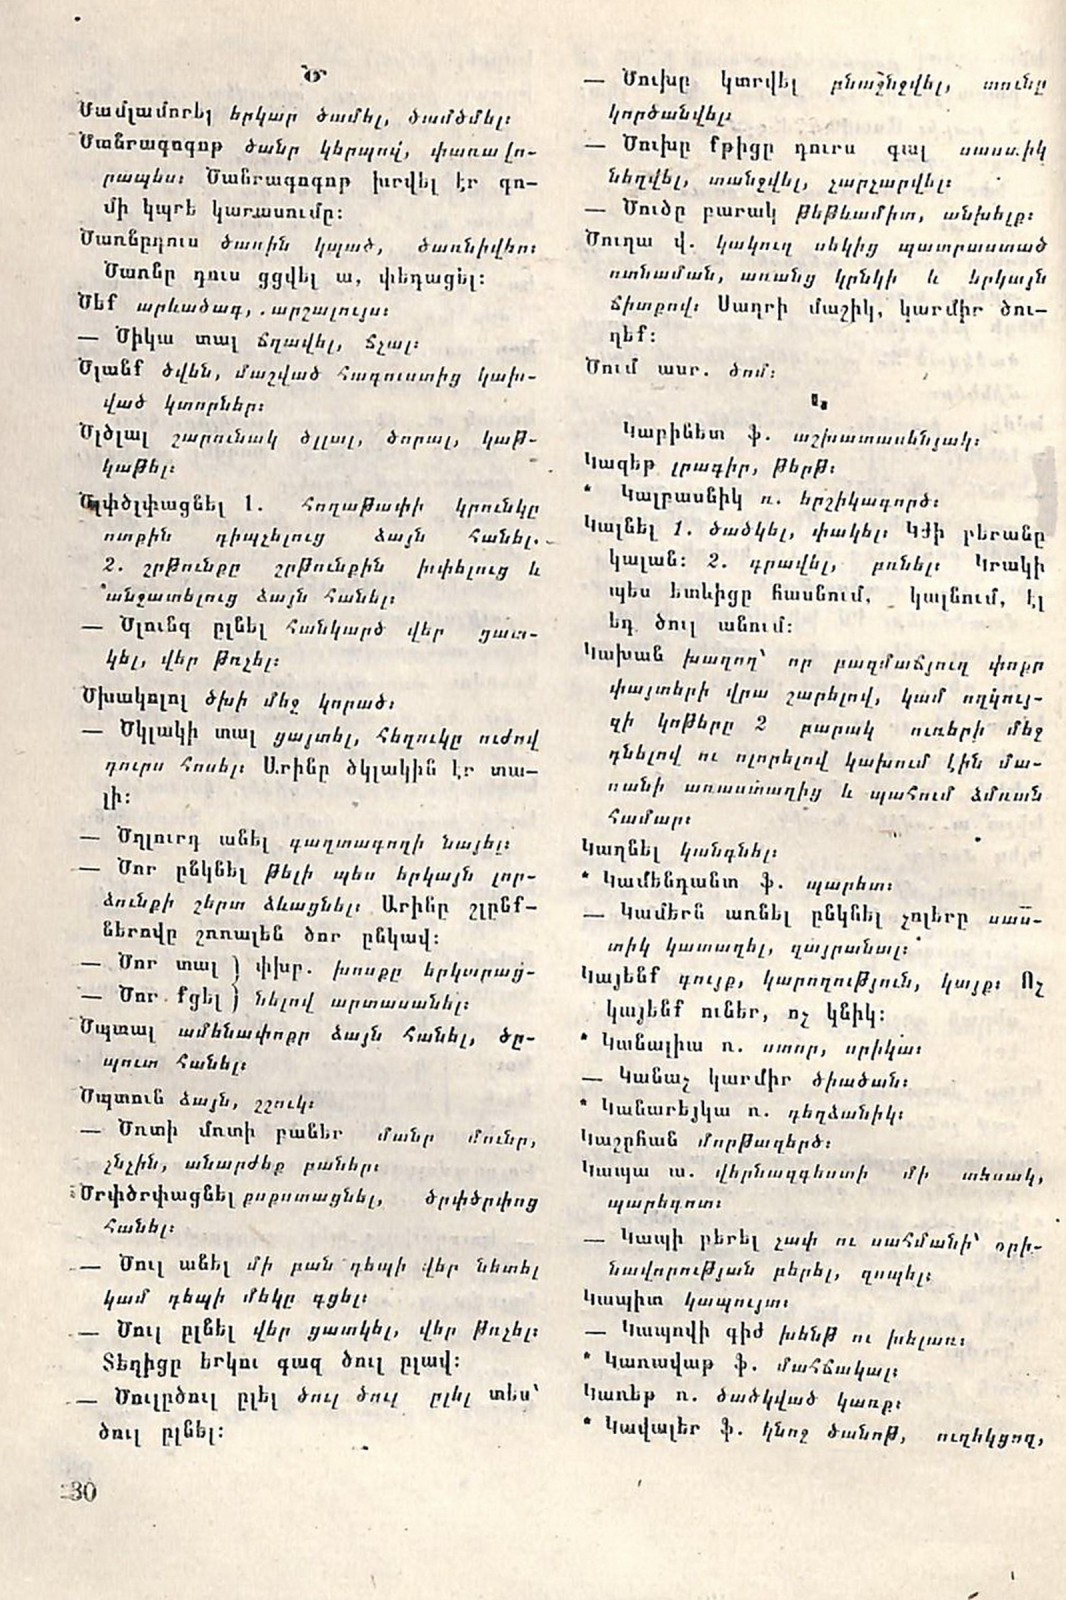 Ծ
Ծամլամորել երկար ծամել, ծամծմել։
Ծանրագոգոթ ծանր կերպով, փառավո-
րապես։ Ծանրագոգոթ խրվել էր գո-
մի կպրե կարասումը։
Ծառնըդուս ծառին կպած, ծառնիվեր։
Ծառնը դուս ցցվել ա, փեդացել։
Ծեֆ արևածագ, արշալույս։
— Ծիկա տալ ճղավել, ճչալ։
Ծլանֆ ծվեն, մաշված հագուստից կախ-
ված կտորներ։
Ծլծլալ շարունակ ծլլալ, ծորալ, կաթ-
կաթել։
Ծլփծլփացնել 1. հողաթափի կրունկը
ոտքին դիպչելուց ձայն հանել.
2. շրթունքը շրթունքին խփելուց և
անջատելուց ձայն հանել։
— Ծլունգ ըլնել հանկարծ վեր ցատ-
կել, վեր թռչել։
Ծխակոլոլ ծխի մեջ կորած։
— Ծկլակի տալ ցայտել, հեղուկը ուժով
դուրս հոսել։ Արինը ծկլակին էր տա-
լի։
— Ծղլուրդ անել գաղտագողի նայել։
— Ծոր ընկնել թելի պես երկայն լոր-
ձունքի շերտ ձևացնել։ Արինը շլընք-
ներովը շոռալեն ծոր ընկավ։
— Ծոր տալ ) փխբ. խոսքը երկարաց-
— Ծոր քցել ) նելով արտասանել։
Ծպտալ ամենափոքր ձայն հանել, ծը-
պուտ հանել։
Ծպտուն ձայն, շշուկ։
— Ծոտի մոտի բաներ մանր մունր,
չնչին, անարժեք բաներ։
Ծրփծրփացնել քսքստացնել, ծրփծրփոց
հանել։
— Ծուլ անել մի բան դեպի վեր նետել
կամ դեպի մեկը գցել։
— Ծուլ ըլնել վեր ցատկել, վեր թռչել։
Տեղիցը երկու գազ ծուլ ըլավ։
— Ծուլըծուլ ըլել ծուլ ծուլ ըլել տես՝
ծուլ ըլնել։
30
— Ծուխը կտրվել բնաջնջվել, տունը
կործանվել։
— Ծուխը քթիցը դուրս գալ սաստիկ
նեղվել, տանջվել, չարչարվել։
— Ծուծը բարակ թեթևամիտ, անխելք։
Ծուղա վ. կակուղ սեկից պատրաստած
ոտնաման, առանց կրնկի և երկայն
ճիտքով։ Սաղրի մաշիկ, կարմիր ծու-
ղեք։
Ծում ասր. ծոմ։
Կ
Կաբինետ ֆ. աշխատասենյակ։
Կազեթ լրագիր, թերթ։
* Կալբասնիկ ռ. երշիկագործ։
Կալնել 1. ծածկել, փակել։ Կժի բերանը
կալան։ 2. գրավել, բռնել։ Կրակի
պես ետևիցը հասնում, կալնում, էլ
եդ ծուլ անում։
Կախան խաղող՝ որ բազմաճյուղ փոքր
փայտերի վրա շարելով, կամ ողկույ-
զի կոթերը 2 բարակ ուռերի մեջ
դնելով ու ոլորելով կախում էին մա-
ռանի առաստաղից և պահում ձմռան
համար։
Կաղնել կանգնել։
* Կամենդանտ ֆ. պարետ։
— Կամերն առնել ընկնել չոլերը սաս-
տիկ կատաղել, զայրանալ։
Կայենք գույք, կարողություն, կայք։ Ոչ
կայենք ուներ, ոչ կնիկ։
* Կանալիա ռ. ստոր, սրիկա։
— Կանաչ կարմիր ծիածան։
* Կանարեյկա ռ. դեղձանիկ։
Կաշըհան մորթազերծ։
Կապա ա. վերնազգեստի մի տեսակ,
պարեգոտ։
— Կապի բերել չափ ու սահմանի՝ օրի-
նավորության բերել, զսպել։
Կապիտ կապույտ։
— Կապովի գիժ խենթ ու խելառ։
* Կառավաթ ֆ. մահճակալ։
Կառեթ ռ. ծածկված կառք։
* Կավալեր ֆ. կնոջ ծանոթ, ուղեկցող,